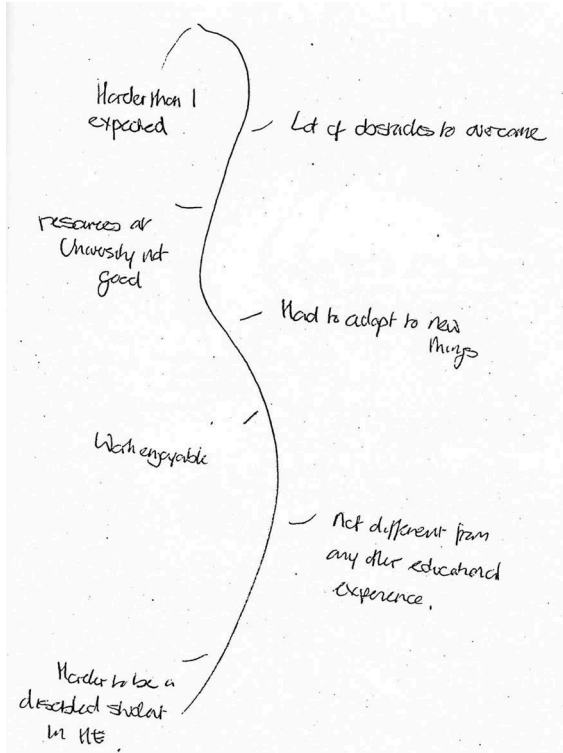 Harder than I
expected
Lot of obstacles to overcome
resources at
University not
good
Had to adapt to new
things
Work enjoyable
Not different from
any other educational
experience.
Harder to be a
disabled student
in HE.